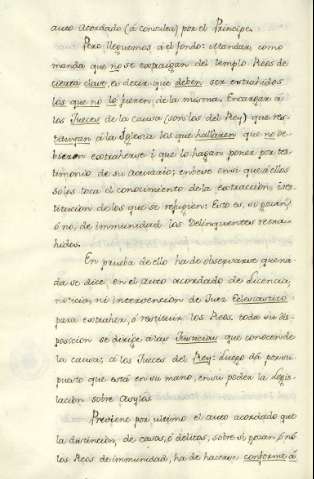 auto acordado (á consulta) por el Principe.
Pero lleguemos á el fondo: Mandar, como
manda que no se extraigan del templo Reos de
cierta clase, es decir que deben ser extrahidos
los que no lo fueren de la misma. Encargar á
los Jueces de la causa (son los del Rey) que res-
tituyan á la Iglesia los que hallaren que no de-
bieron extraherse i que lo hagan poner por tes-
timonio de su actuario; embeve en si que á ellos
solos toca el conocimiento de la extraccion, i res-
titucion de los que se refugien: Esto es, si gozan,
ó no, de immunidad los Delinquentes retra-
hidos.
En prueba de ello ha de observarse que na-
da se dice en el auto acordado de Licencia,
noticia, ni intervencion de Juez Eclesiastico
para extraher, ó restituir los Reos. toda su dis-
posicion se dirije á las Justicias que conocen de
la causa; á los Jueces del Rey: Luego dá por su-
puesto que está en su mano, en su poder la legis-
lacion sobre asylos.
Previene por ultimo el auto acordado que
la distincion, de casos, ó delitos, sobre si gozan, ó nó
los Reos de immunidad, ha de hacerse conforme á